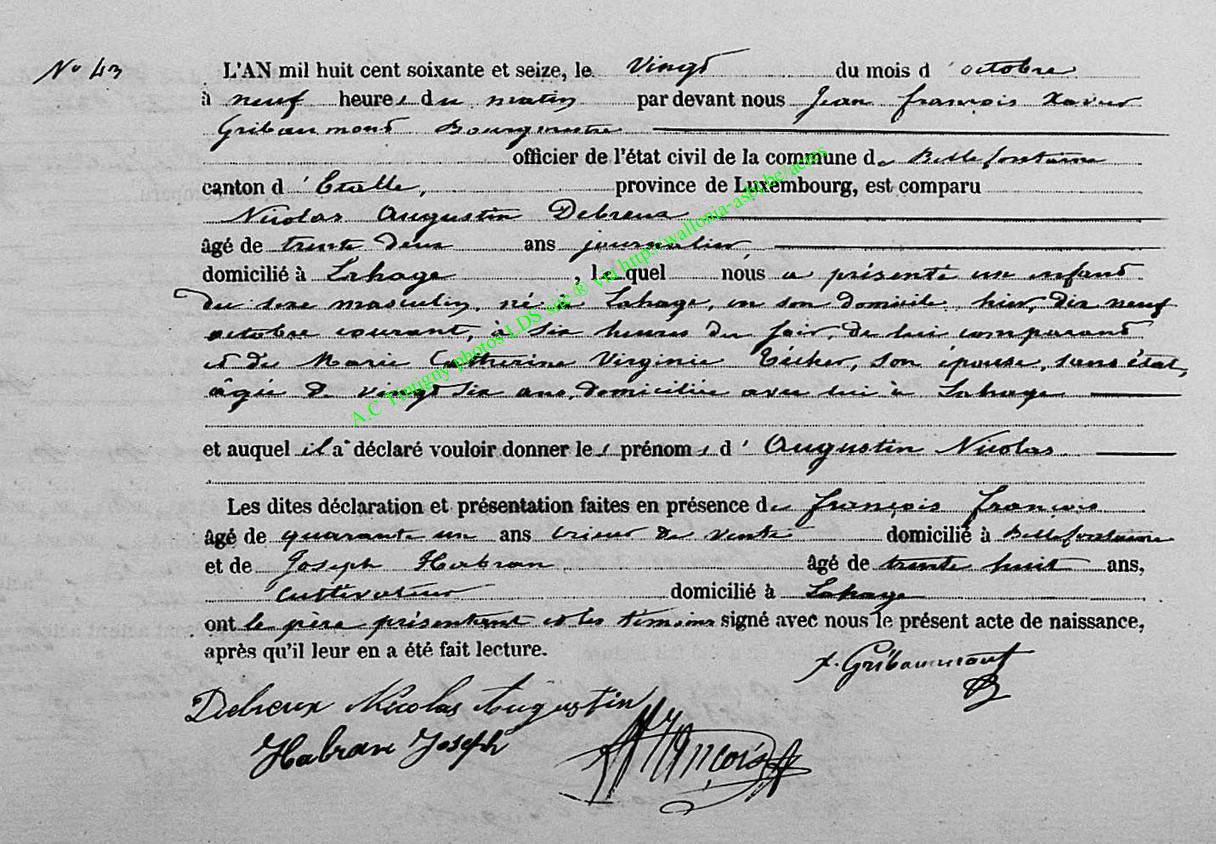 No 43
L'AN mil huit cent soixante et seize, le vingt du mois d'octobre
à neuf heures du matin par devant nous Jean françois Xavier
Gribaumont Bourgmestre
officier de l'état civil de la commune de Bellefontaine
canton d'Etalle, province de Luxembourg, est comparu
Nicolas Augustin Debreux
âgé de trente deux ans journalier
domicilié à Lahage, lequel nous a présenté un enfant
du sexe masculin, né à Lahage, en son domicile hier, dix neuf
octobre courant, à six heures du soir, de lui comparant
et de Marie Catherine Virginie son épouse, sans état,
âgée de vingt six ans, domiciliée avec lui à Lahage
et auquel il a déclaré vouloir donner les prénoms d'Augustin Nicolas
Les dites déclaration et présentation faites en présence de françois francois
âgé de quarante un ans de domicilié à Bellefontaine
et de Joseph Habran âgé de trente huit ans,
cultivateur domicilié à Lahage
ont le père présentant et les témoins signé avec nous le présent acte de naissance,
après qu'il leur en a été fait lecture.
x. Gribaumont
Debreux Nicolas Augustin
Habran Joseph
françois
A.C Tintigny photos LDS sur ® via http://wallonia-asbl.be/actes